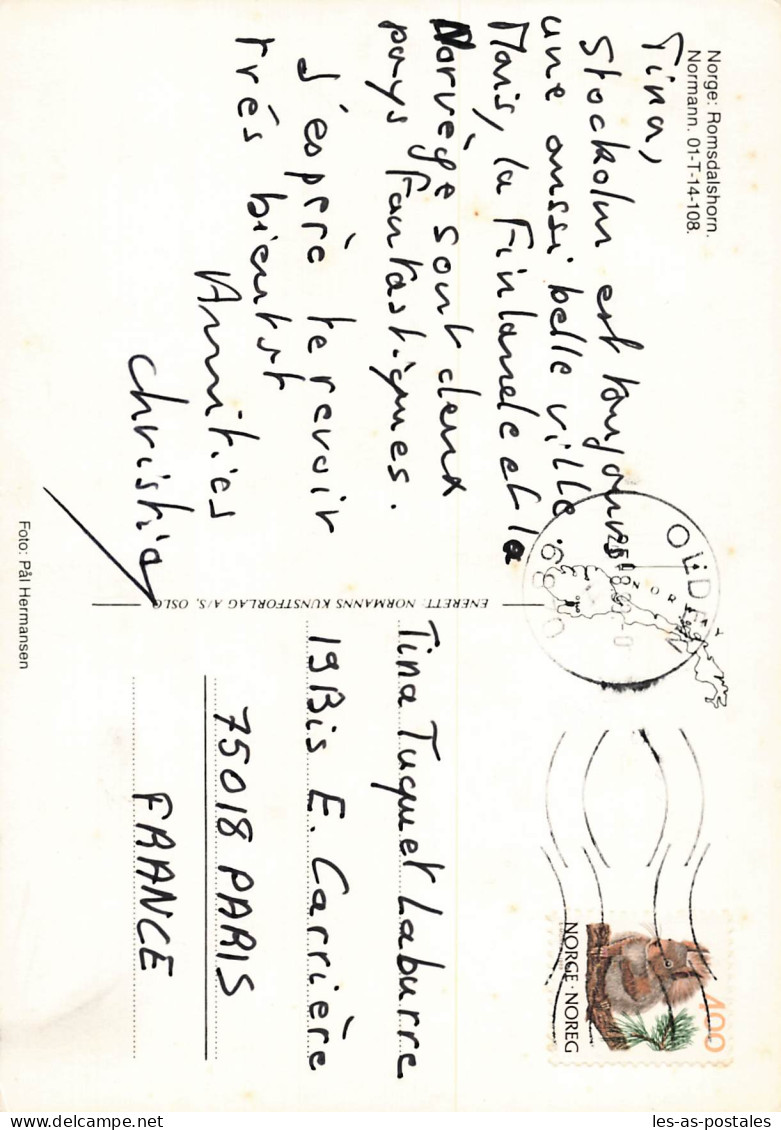 Norge: Romsdalshorn.
Normann. 01-T-14-108.
Tina,
Stockolm est toujours
une aussi belle ville.
Mais, la Finlande et la
Norvège sont deux
pays fantastiques.
J'espère te revoir
très bientôt
Amitiés
Christie
Foto: Pål Hermansen
ENERETT: NORMANNS KUNSTFORLAG A/S, OSLO
OLDEN
NORWAY
NORGE·NOREG
400
Tina Tuquet Laburre
19Bis E. Carrière
75018 PARIS
FRANCE
les-as-postales